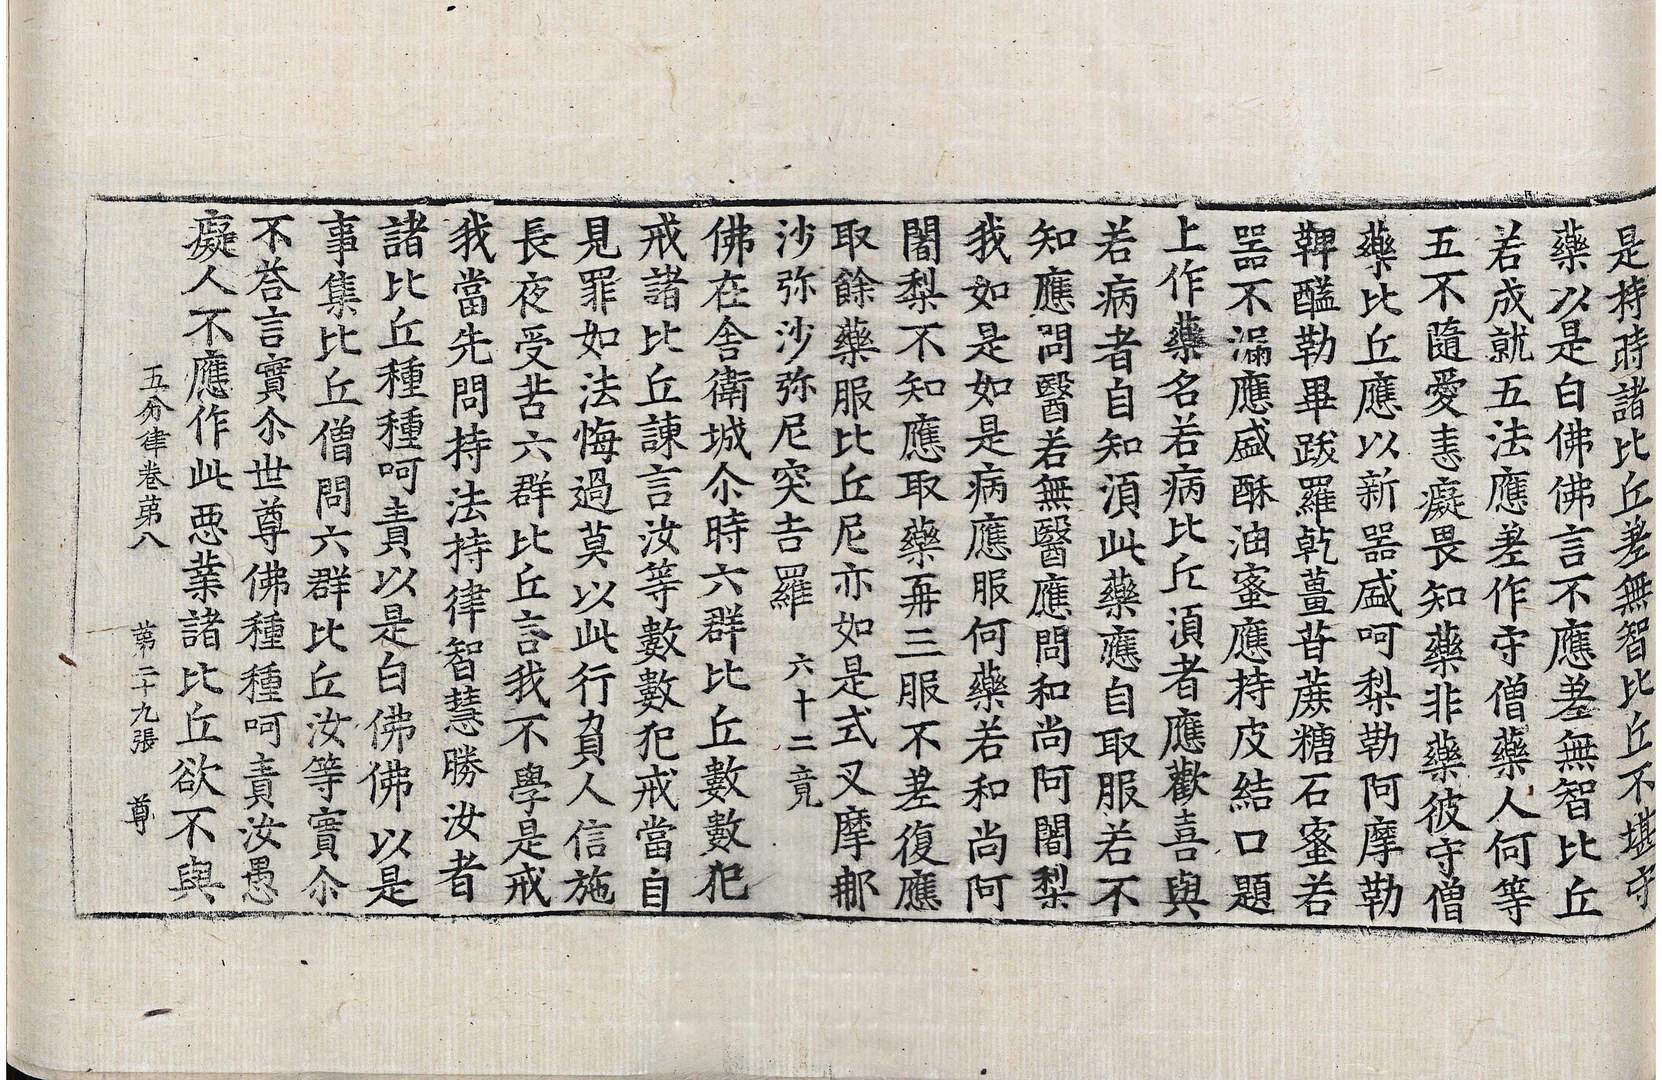 是持時諸比丘差無智比丘不堪守
藥以是白佛佛言不應差無智比丘
若成就五法應差作守僧藥人何等
五不隨愛恚癡畏知藥非藥彼守僧
藥比丘應以新器盛呵梨勒阿摩勒
鞞醯勒畢跋羅乾薑苷蔗糖石蜜若
器不漏應盛酥油蜜應持皮結口題
上作藥名若病比丘湏者應歡喜與
若病者自知湏此藥應自取服若不
知應問醫若無醫應問和尚阿闍梨
我如是如是病應服何藥若和尚阿
闍梨不知應取藥再三服不差復應
取餘藥服比丘尼亦如是式叉摩那
沙弥沙弥尼突吉羅 六十二竟
佛在舍衛城尒時六群比丘數數犯
戒諸比丘諫言汝等數數犯戒當自
見罪如法悔過莫以此行負人信施
長夜受苦六群比丘言我不學是戒
我當先問持法持律智慧勝汝者
諸比丘種種呵責以是白佛佛以是
事集比丘僧問六群比丘汝等實尒
不荅言實尒世尊佛種種呵責汝愚
癡人不應作此惡業諸比丘欲不與
五分律卷苐八 苐二十九張 尊